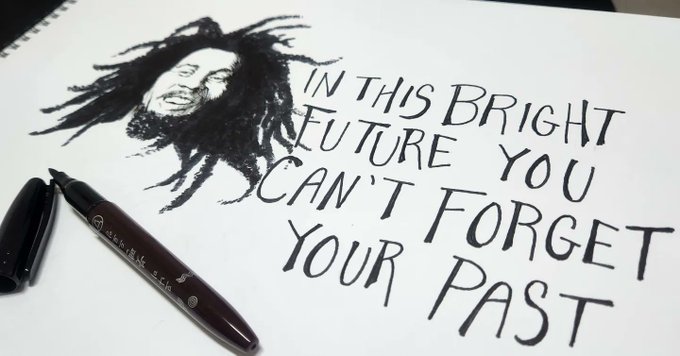 IN THIS BRIGHT
FUTURE YOU
CAN'T FORGET
YOUR PAST